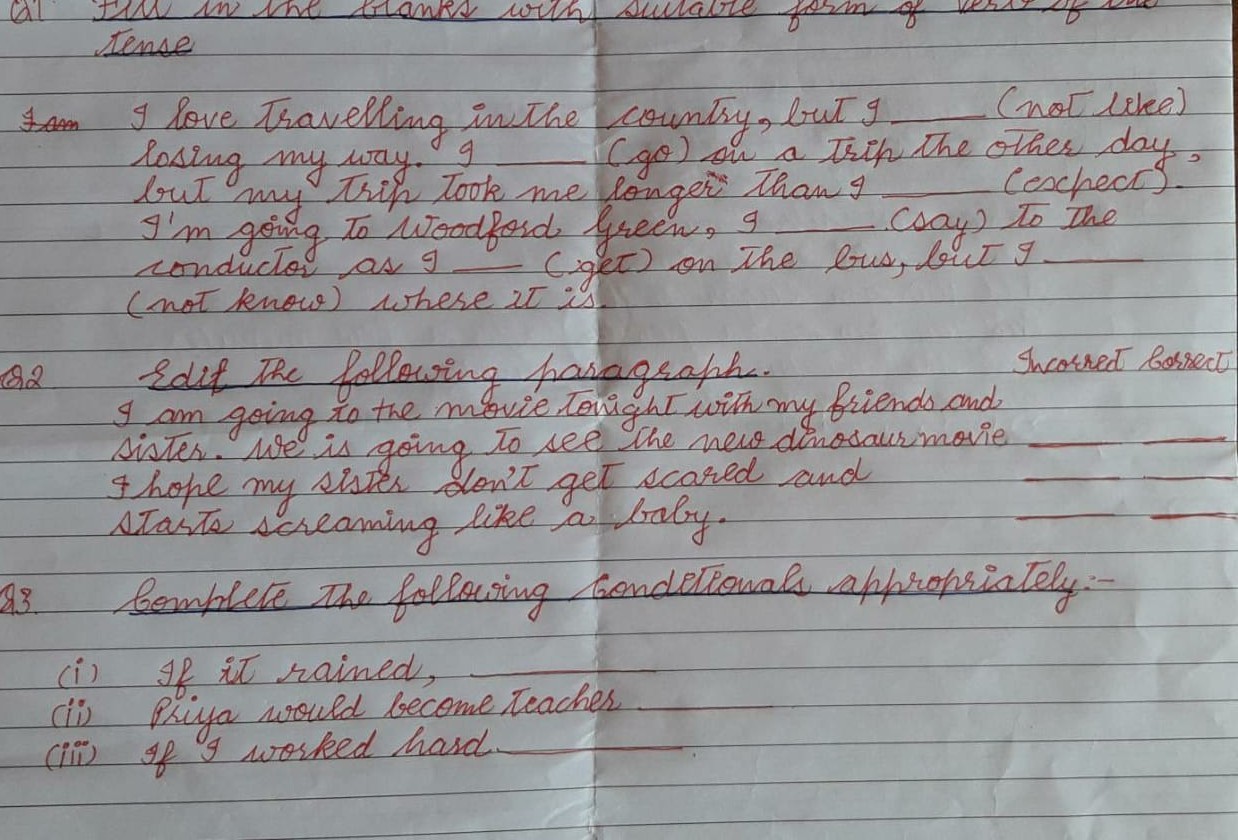 Q1 Fill in the blanks with suitable form of verb of the
tense
I am I love travelling in the country, but I ____ (not like)
losing my way. I ____ (go) on a trip the other day,
but my trip took me longer than I ____ (exchect).
I'm going to Woodford Green, I ____ (say) to the
conductor as I ___ (get) on the bus, but I ____
(not know) where it is.
Q2 Edit the following paragraph. Incorrect Correct
I am going to the movie tonight with my friends and
sister. We is going to see the new dinosaur movie ____ ____
I hope my sister don't get scared and ____ ____
starts screaming like a baby. ____ ____
Q3. Complete the following Conditionals appropriately:-
(i) If it rained, ________
(ii) Priya would become teacher ______
(iii) If I worked hard ________.